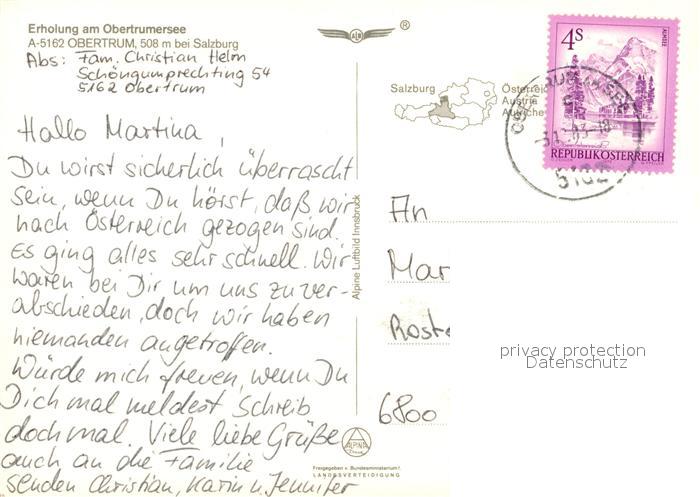 Erholung am Obertrumersee
A-5162 OBERTRUM, 508 m bei Salzburg
Abs: Fam. Christian Helm
Schöngumprechting 54
5162 Obertrum
Hallo Martina,
Du wirst sicherlich überrascht
sein, wenn Du hörst, daß wir
nach Österreich gezogen sind.
Es ging alles sehr schnell. Wir
waren bei Dir um uns zu ver-
abschieden, doch wir haben
niemanden angetroffen.
Würde mich freuen, wenn Du
Dich mal meldest Schreib
doch mal. Viele liebe Grüße
auch an die Familie
senden Christian, Karin u. Jennifer
Alpine Luftbild Innsbruck
®
Salzburg
Österreic
Austria
Autriche
4S
ALMSEE
REPUBLIK ÖSTERREICH
5162
An
Mar
Roste
6800
privacy protection
Datenschutz
ALPINE
Freigegeben v. Bundesministerium f.
LANDESVERTEIDIGUNG